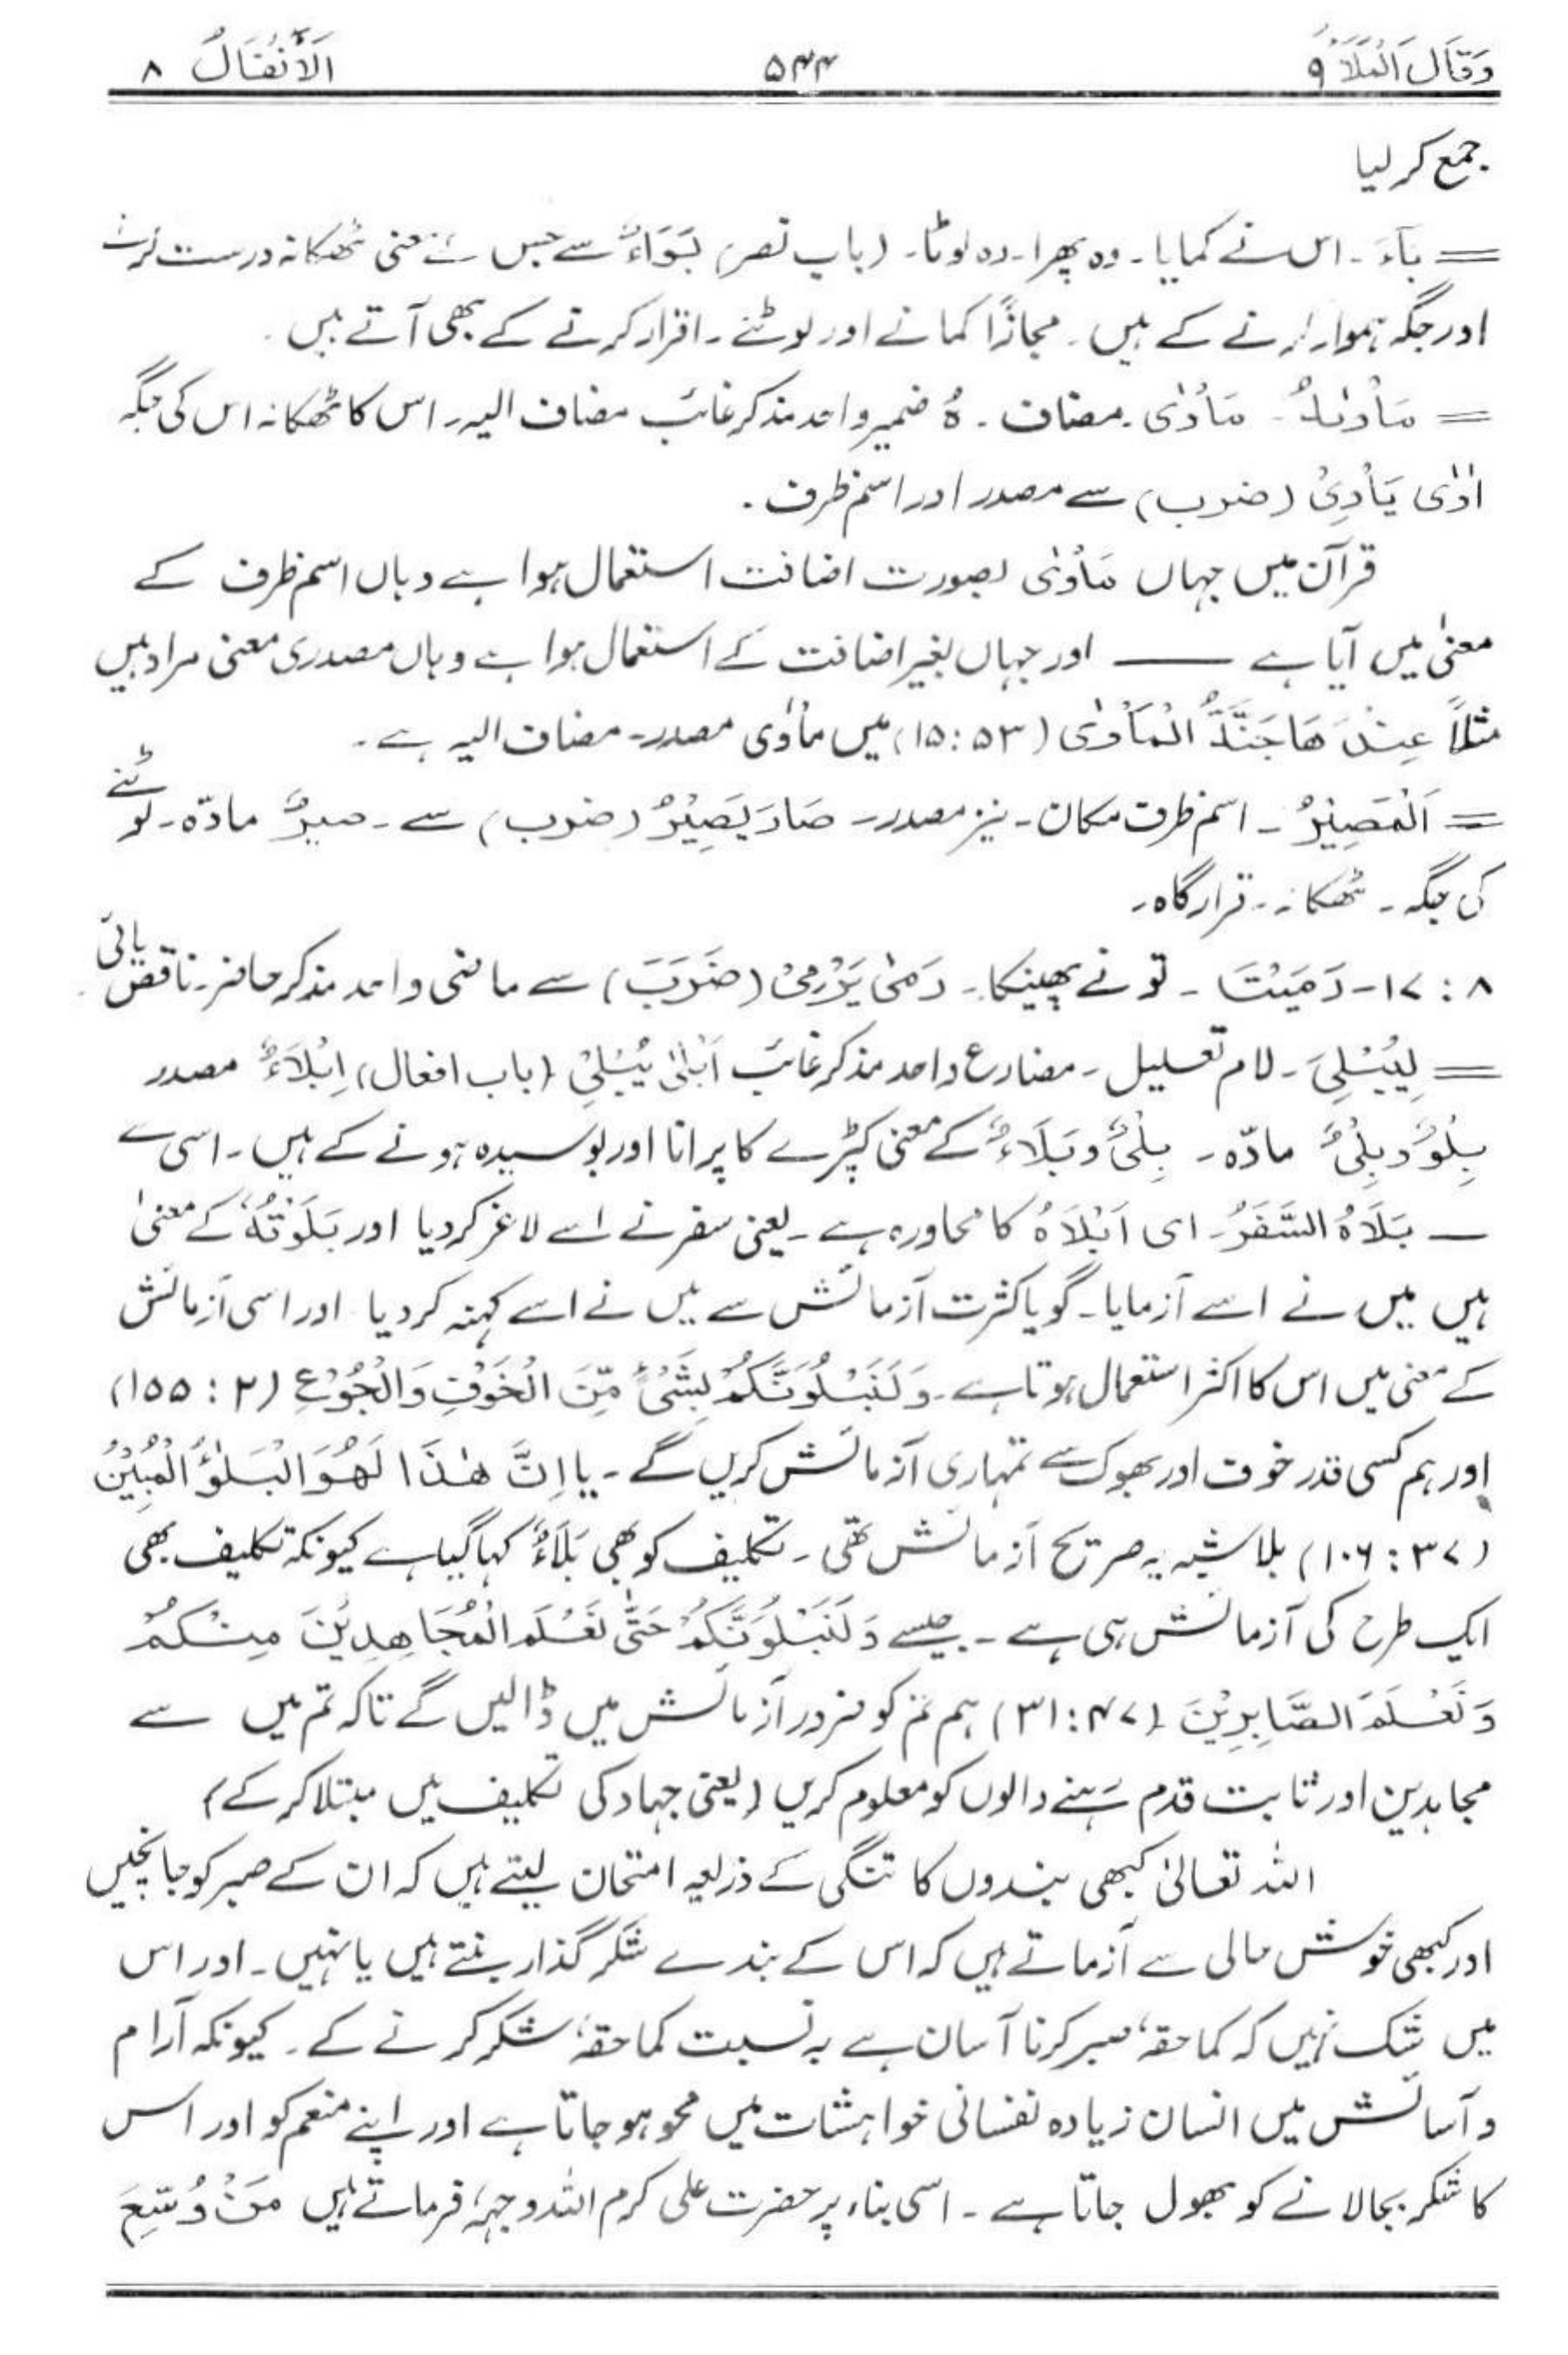 وَقَالَ الْمَلَأُ ٩ ۵۴۴ اَلْاَنْفَالُ ٨
جمع کر لیا
= بَآءَ۔ اس نے کمایا۔ وہ پھرا۔ وہ لوٹا۔ (باب نصر) بَوَاءٌ سے جس کے معنی ٹھکانہ درست کرنے
اور جگہ ہموار کرنے کے ہیں۔ مجازًا کمانے اور لوٹنے۔ اقرار کرنے کے بھی آتے ہیں۔
= مَأْوٰىهُ۔ مَأْوٰى۔ مضاف۔ هُ ضمیر واحد مذکر غائب مضاف الیہ۔ اس کا ٹھکانہ اس کی جگہ
اَوٰى يَأْوِيْ (ضرب) سے مصدر اور اسم ظرف۔
قرآن میں جہاں مَأْوٰى بصورت اضافت استعمال ہوا ہے وہاں اسم ظرف کے
معنیٰ میں آیا ہے —— اور جہاں بغیر اضافت کے استعمال ہوا ہے وہاں مصدری معنی مراد ہیں
مثلاً عِنْدَهَا جَنَّةُ الْمَأْوٰى (۵۳ : ۱۵) میں مأوٰی مصدر۔ مضاف الیہ ہے۔
= اَلْمَصِيْرُ۔ اسم ظرف مکان۔ نیز مصدر۔ صَارَ يَصِيْرُ (ضرب) سے۔ صیرٌ مادّہ۔ لوٹنے
کی جگہ۔ ٹھکانہ۔ قرار گاہ۔
٨ : ١٧۔ رَمَيْتَ۔ تو نے پھینکا۔ رَمٰى يَرْمِيْ (ضَرَبَ) سے ماضی واحد مذکر حاضر۔ ناقص یائی
= لِيُبْلِيَ۔ لام تعلیل۔ مضارع واحد مذکر غائب اَبْلٰى يُبْلِيْ (باب افعال) اِبْلَاءٌ مصدر
بِلْوٌ وبِلْيٌ مادّہ۔ بِلًى وبَلَاءٌ کے معنی کپڑے کا پرانا اور بوسیدہ ہونے کے ہیں۔ اسی سے
— بَلَاهُ السَّفَرُ۔ ای اَبْلَاهُ کا محاورہ ہے۔ یعنی سفر نے اسے لاغر کر دیا اور بَلَوْتُهٗ کے معنیٰ
ہیں میں نے اسے آزمایا۔ گویا کثرت آزمائش سے میں نے اسے کہنہ کر دیا اور اسی آزمائش
کے معنی میں اس کا اکثر استعمال ہوتا ہے۔ وَلَنَبْلُوَنَّكُمْ بِشَيْءٍ مِّنَ الْخَوْفِ وَالْجُوْعِ (۲ : ۱۵۵)
اور ہم کسی قدر خوف اور بھوک سے تمہاری آزمائش کریں گے۔ یا اِنَّ هٰذَا لَهُوَ الْبَلٰؤُ الْمُبِيْنُ
(۳۷ : ۱۰۶) بلاشبہ یہ صریح آزمائش تھی۔ تکلیف کو بھی بَلَاءٌ کہا گیا ہے کیونکہ تکلیف بھی
ایک طرح کی آزمائش ہی ہے۔ جیسے وَلَنَبْلُوَنَّكُمْ حَتّٰى نَعْلَمَ الْمُجَاهِدِيْنَ مِنْكُمْ
وَنَعْلَمَ الصَّابِرِيْنَ (۴۷ : ۳۱) ہم تم کو ضرور آزمائش میں ڈالیں گے تاکہ تم میں سے
مجاہدین اور ثابت قدم رہنے والوں کو معلوم کریں (یعنی جہاد کی تکلیف میں مبتلا کر کے)
اللہ تعالیٰ کبھی بندوں کا تنگی کے ذریعہ امتحان لیتے ہیں کہ ان کے صبر کو جانچیں
اور کبھی خوش حالی سے آزماتے ہیں کہ اس کے بندے شکر گذار بنتے ہیں یا نہیں۔ اور اس
میں شک نہیں کہ کماحقہٗ صبر کرنا آسان ہے بہ نسبت کماحقہٗ شکر کرنے کے۔ کیونکہ آرام
و آسائش میں انسان زیادہ نفسانی خواہشات میں محو ہو جاتا ہے اور اپنے منعم کو اور اس
کا شکر بجا لانے کو بھول جاتا ہے۔ اسی بناء پر حضرت علی کرم اللہ وجہہٗ فرماتے ہیں مَنْ وُسِّعَ